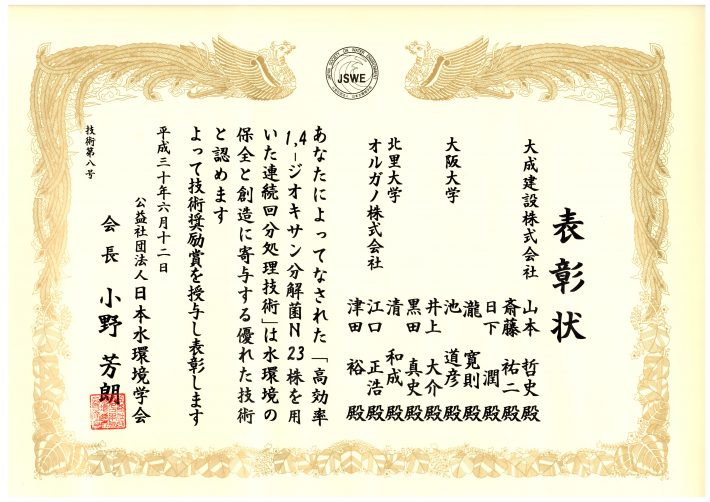 JAPAN SOCIETY ON WATER ENVIRONMENT
JSWE
表彰状
大成建設株式会社 山本 哲史 殿
斎藤 祐二 殿
日下 潤 殿
瀧 寛則 殿
大阪大学 池 道彦 殿
井上 大介 殿
黒田 真史 殿
北里大学 清 和成 殿
オルガノ株式会社 江口 正浩 殿
津田 裕 殿
あなたによってなされた「高効率
1,4-ジオキサン分解菌N23株を用
いた連続回分処理技術」は水環境の
保全と創造に寄与する優れた技術
と認めます
よって技術奨励賞を授与し表彰します
平成三十年六月十二日
公益社団法人日本水環境学会
会長 小野 芳朗
技術第八号